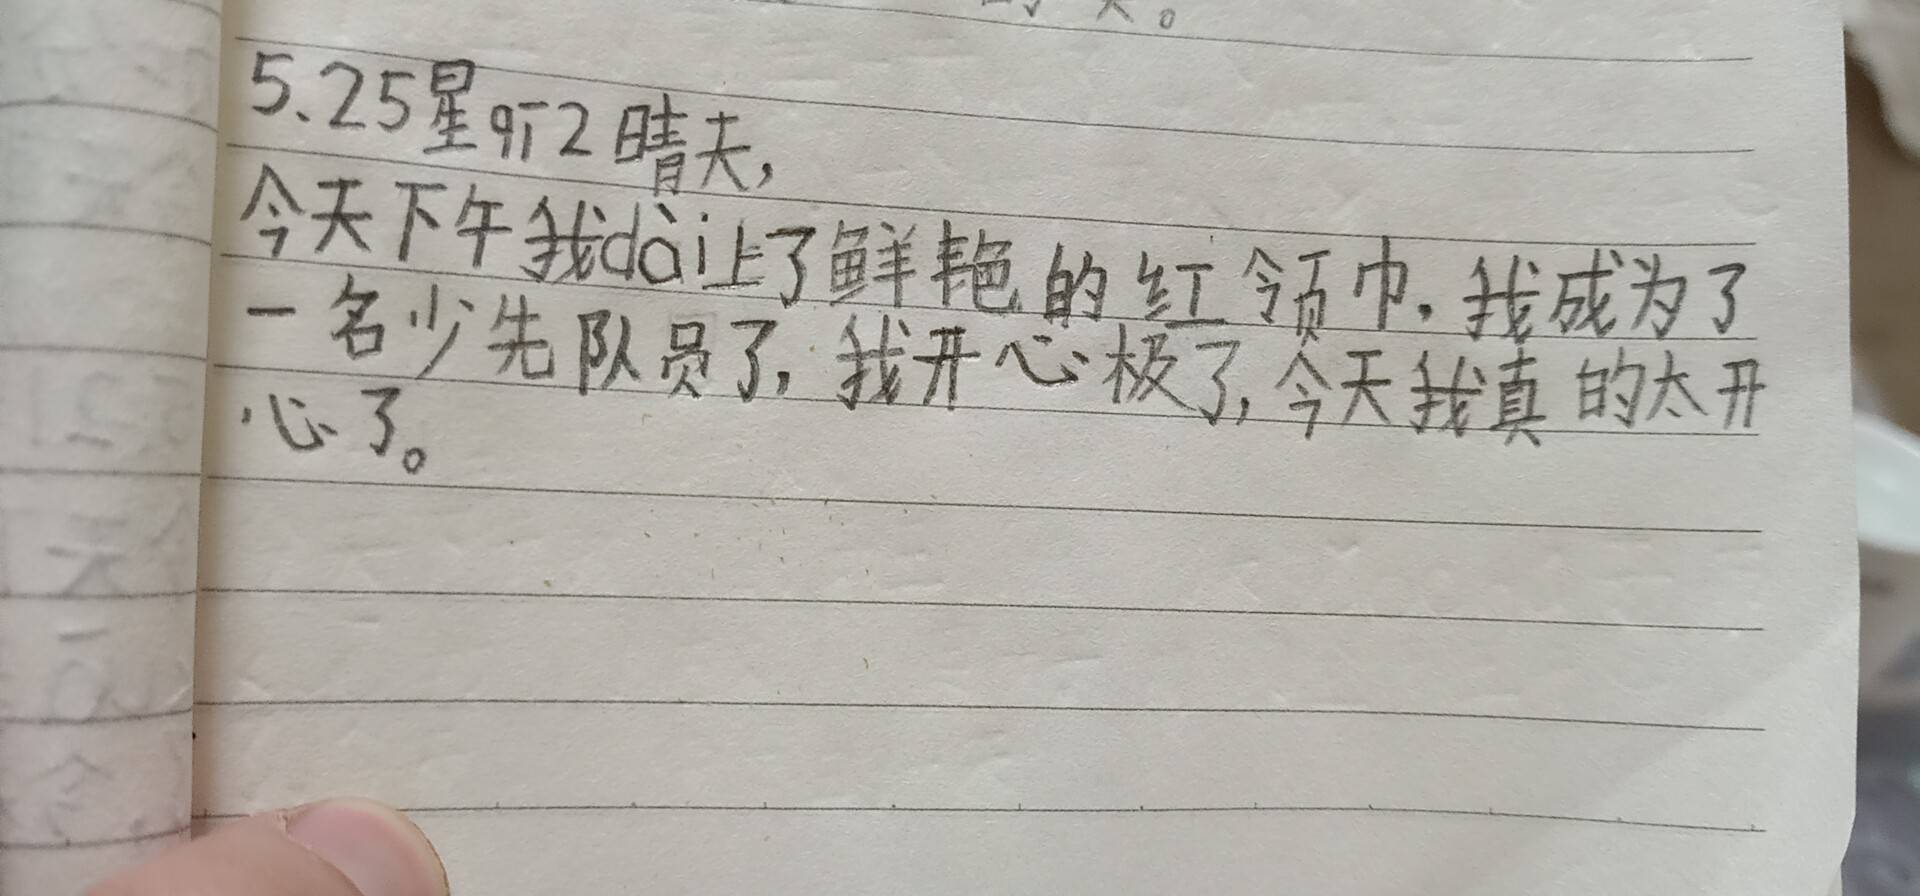 5.25星qī2晴天,
今天下午我dài上了鲜艳的红领巾.我成为了
一名少先队员了,我开心极了,今天我真的太开
心了。